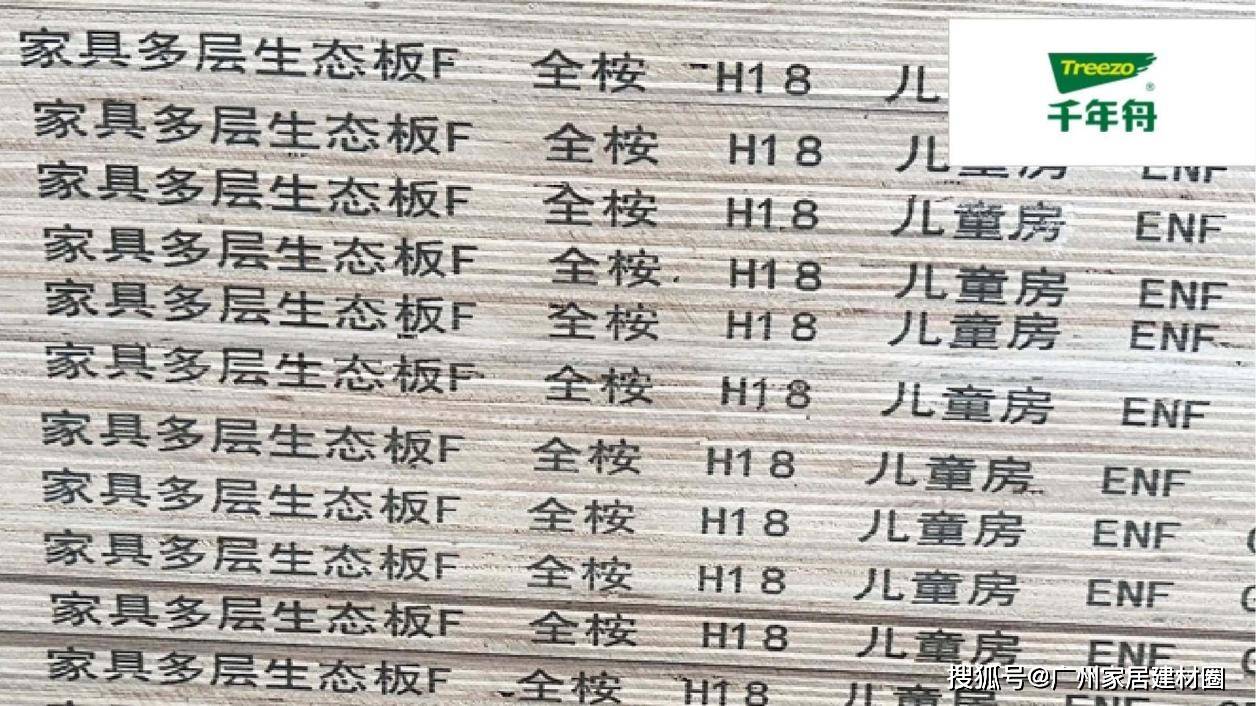 家具多层生态板F 全桉 H18 儿
Treezo
千年舟
家具多层生态板F 全桉 H18 儿童房 ENF
家具多层生态板F 全桉 H18 儿童房 ENF
家具多层生态板F 全桉 H18 儿童房 ENF
家具多层生态板F 全桉 H18 儿童房 ENF
家具多层生态板F 全桉 H18 儿童房 ENF
家具多层生态板F 全桉 H18 儿童房 ENF
家具多层生态板F 全桉 H18 儿童房 ENF
家具多层生态板F 全桉 H18 儿童房 ENF
家具多层生态板F 全桉 H18 儿童房 ENF
家具多层生态板F 全桉 H18 儿童房 ENF
搜狐号@广州家居建材圈